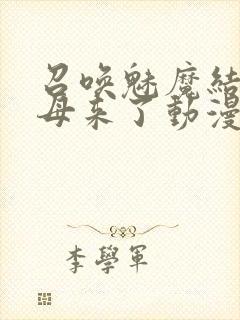 召喚魅魔結
母来了動漫
李學軍